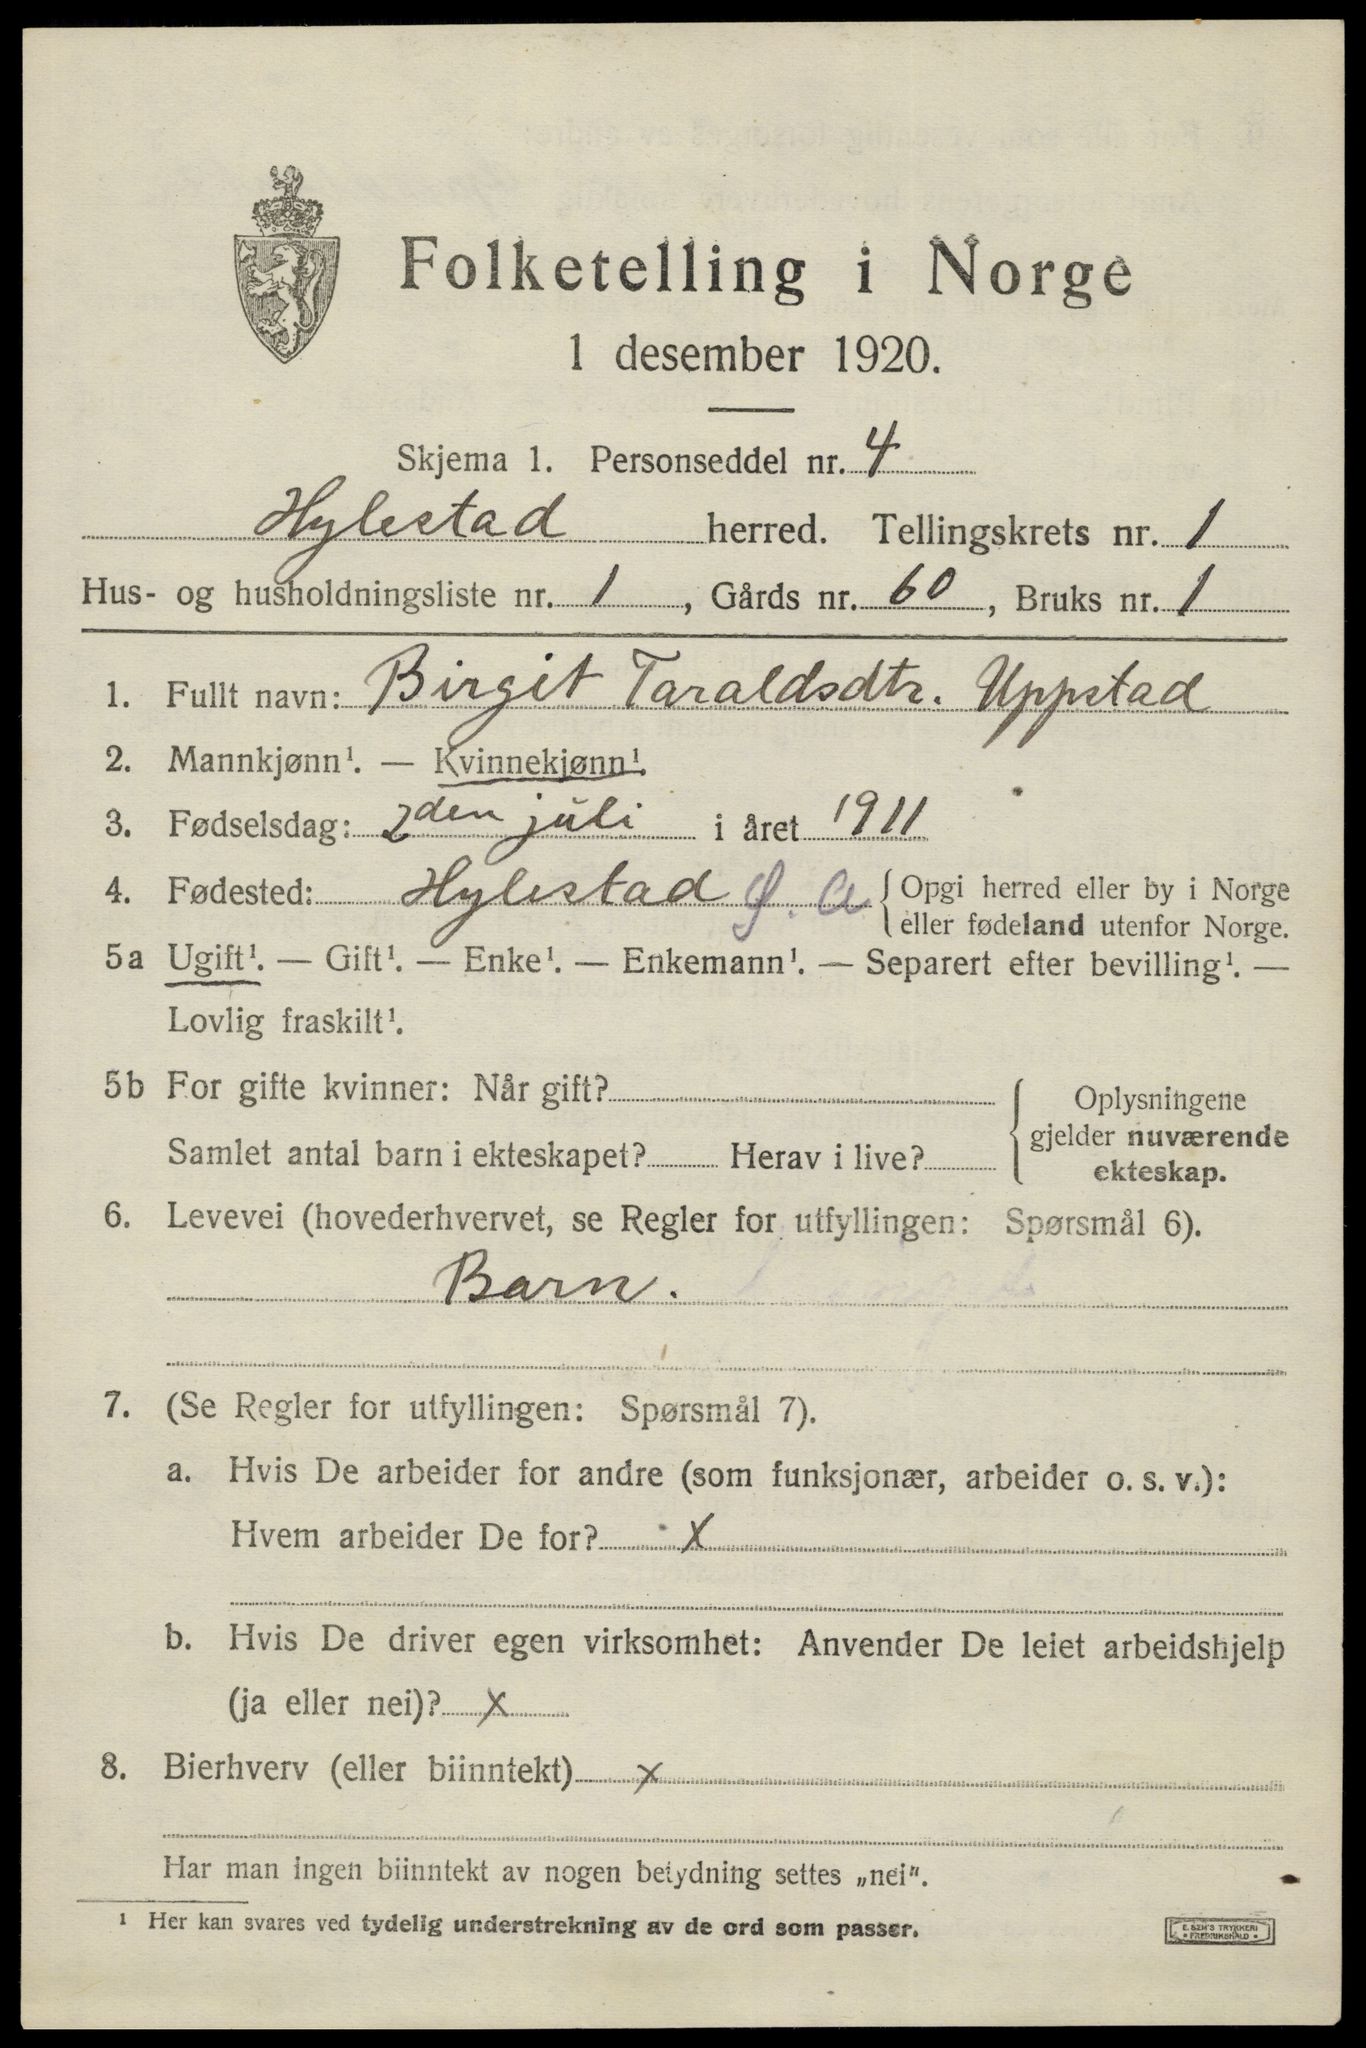 Folketelling i Norge
1 desember 1920.
Skjema 1. Personseddel nr. 4
Hylestad herred. Tellingskrets nr. 1
Hus- og husholdningsliste nr. 1, Gårds nr. 60, Bruks nr. 1
1. Fullt navn: Birgit Taraldsdtr. Uppstad
2. Mannkjønn¹. — Kvinnekjønn¹.
3. Fødselsdag: 2den juli i året 1911
4. Fødested: Hylestad Ø. A { Opgi herred eller by i Norge
eller fødeland utenfor Norge.
5a Ugift¹. — Gift¹. — Enke¹. — Enkemann¹. — Separert efter bevilling¹. —
Lovlig fraskilt¹.
5b For gifte kvinner: Når gift? { Oplysningene
gjelder nuværende
Samlet antal barn i ekteskapet? Herav i live?
ekteskap.
6. Levevei (hovederhvervet, se Regler for utfyllingen: Spørsmål 6).
Barn.
7. (Se Regler for utfyllingen: Spørsmål 7).
a. Hvis De arbeider for andre (som funksjonær, arbeider o. s. v.):
Hvem arbeider De for? x
b. Hvis De driver egen virksomhet: Anvender De leiet arbeidshjelp
(ja eller nei)? x
8. Bierhverv (eller biinntekt) x
Har man ingen biinntekt av nogen betydning settes „nei".
¹ Her kan svares ved tydelig understrekning av de ord som passer.
E. SEM'S TRYKKERI
FREDRIKSHALD